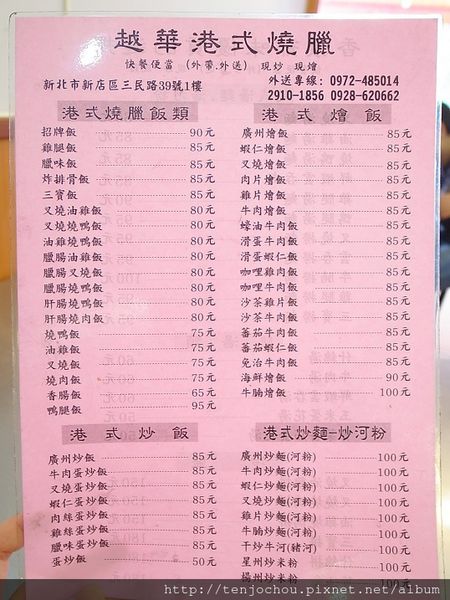 越華港式燒臘
快餐便當 (外帶.外送) 現炒 現燴
新北市新店區三民路39號1樓
外送專線: 0972-485014
2910-1856 0928-620662
港式燒臘飯類
招牌飯 90元
雞腿飯 85元
臘味飯 85元
炸排骨飯 85元
三寶飯 85元
叉燒油雞飯 80元
叉燒燒鴨飯 80元
油雞燒鴨飯 80元
臘腸油雞飯 80元
臘腸叉燒飯 80元
臘腸燒鴨飯 80元
肝腸燒鴨飯 80元
肝腸燒肉飯 80元
燒鴨飯 75元
油雞飯 75元
叉燒飯 75元
燒肉飯 75元
香腸飯 65元
鴨腿飯 95元
港式燴飯
廣州燴飯 85元
蝦仁燴飯 85元
叉燒燴飯 85元
肉片燴飯 85元
雞片燴飯 85元
牛肉燴飯 85元
蠔油牛肉飯 85元
滑蛋牛肉飯 85元
滑蛋蝦仁飯 85元
咖哩雞肉飯 85元
咖哩牛肉飯 85元
沙茶雞片飯 85元
沙茶牛肉飯 85元
蕃茄牛肉飯 85元
蕃茄蝦仁飯 85元
免治牛肉飯 85元
海鮮燴飯 90元
牛腩燴飯 100元
港式炒飯
廣州炒飯 85元
牛肉蛋炒飯 85元
叉燒蛋炒飯 85元
蝦仁蛋炒飯 85元
肉絲蛋炒飯 85元
雞絲蛋炒飯 85元
臘味蛋炒飯 85元
蛋炒飯 50元
港式炒麵-炒河粉
廣州炒麵(河粉) 100元
牛肉炒麵(河粉) 100元
蝦仁炒麵(河粉) 100元
叉燒炒麵(河粉) 100元
雞片炒麵(河粉) 100元
牛腩炒麵(河粉) 100元
干炒牛河(豬河) 100元
星州炒米粉 100元
揚州炒米粉 100元
http://tenjochou.pixnet.net/album